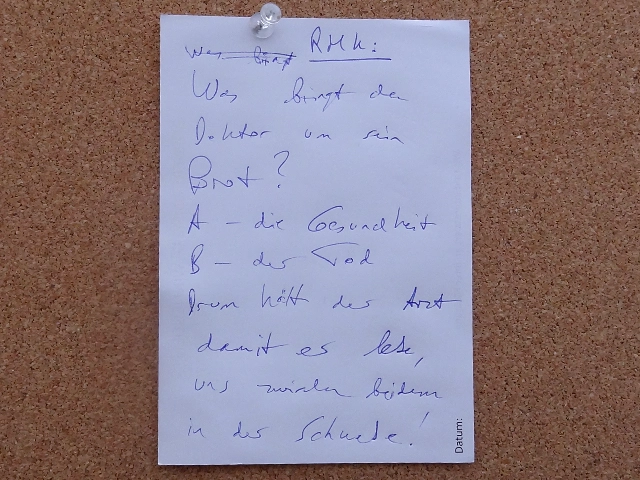 Was bingt RMK:
Was bingt den
Doktor um sein
Brot?
A - die Gesundheit
B - der Tod
Drum hält der Arzt
damit es lebe,
uns zwischen beidem
in der Schwebe!
Datum: